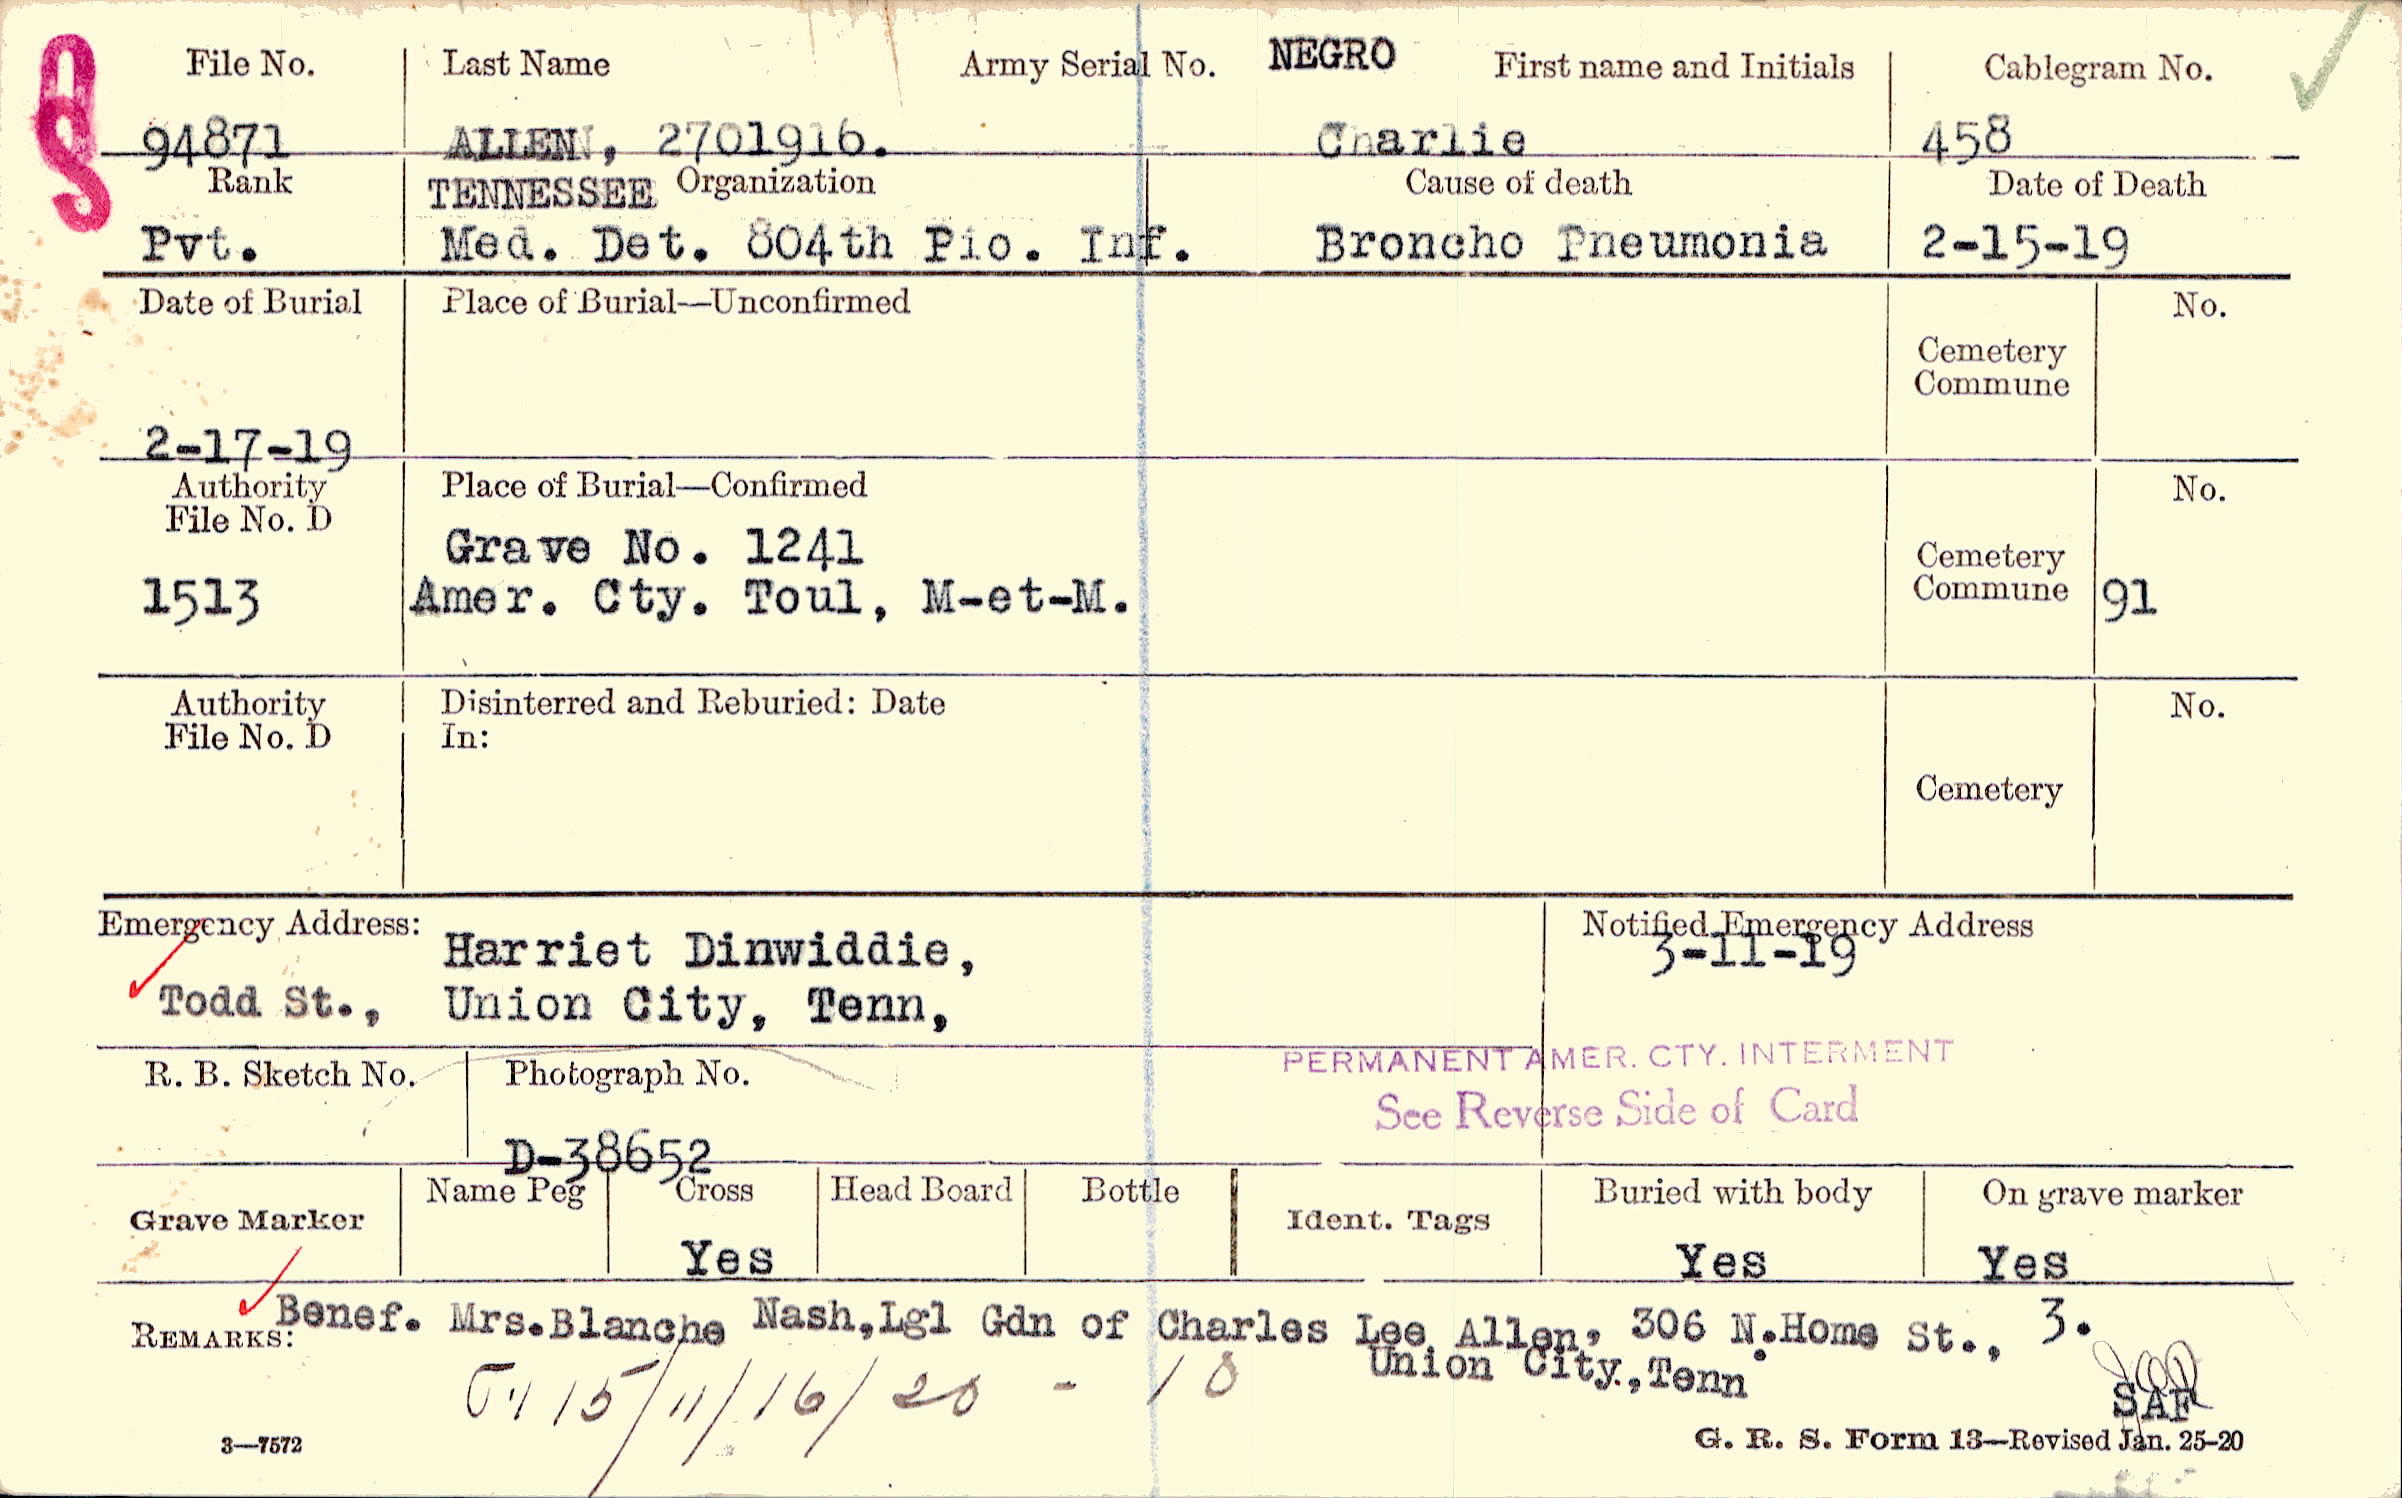 File No. Last Name Army Serial No. NEGRO First name and Initials Cablegram No.
94871 ALLEN, 2701916. Charlie 458
Rank TENNESSEE Organization Cause of death Date of Death
Pvt. Med. Det. 804th Pio. Inf. Broncho Pneumonia 2-15-19
Date of Burial Place of Burial—Unconfirmed No.
Cemetery
Commune
2-17-19
Authority Place of Burial—Confirmed No.
File No. D
Grave No. 1241
Cemetery
1513 Amer. Cty. Toul, M-et-M. Commune 91
Authority Disinterred and Reburied: Date No.
File No. D In:
Cemetery
Emergency Address: Harriet Dinwiddie, Notified Emergency Address
3-11-19
Todd St., Union City, Tenn,
PERMANENT AMER. CTY. INTERMENT
R. B. Sketch No. Photograph No.
See Reverse Side of Card
D-38652
Name Peg Cross Head Board Bottle Buried with body On grave marker
Grave Marker Ident. Tags
Yes Yes Yes
Benef. Mrs.Blanche Nash,Lgl Gdn of Charles Lee Allen, 306 N.Home St., 3.
REMARKS: Union City.,Tenn
15/11/16/20 - 18
SAF
3—7572 G. R. S. Form 13—Revised Jan. 25-20